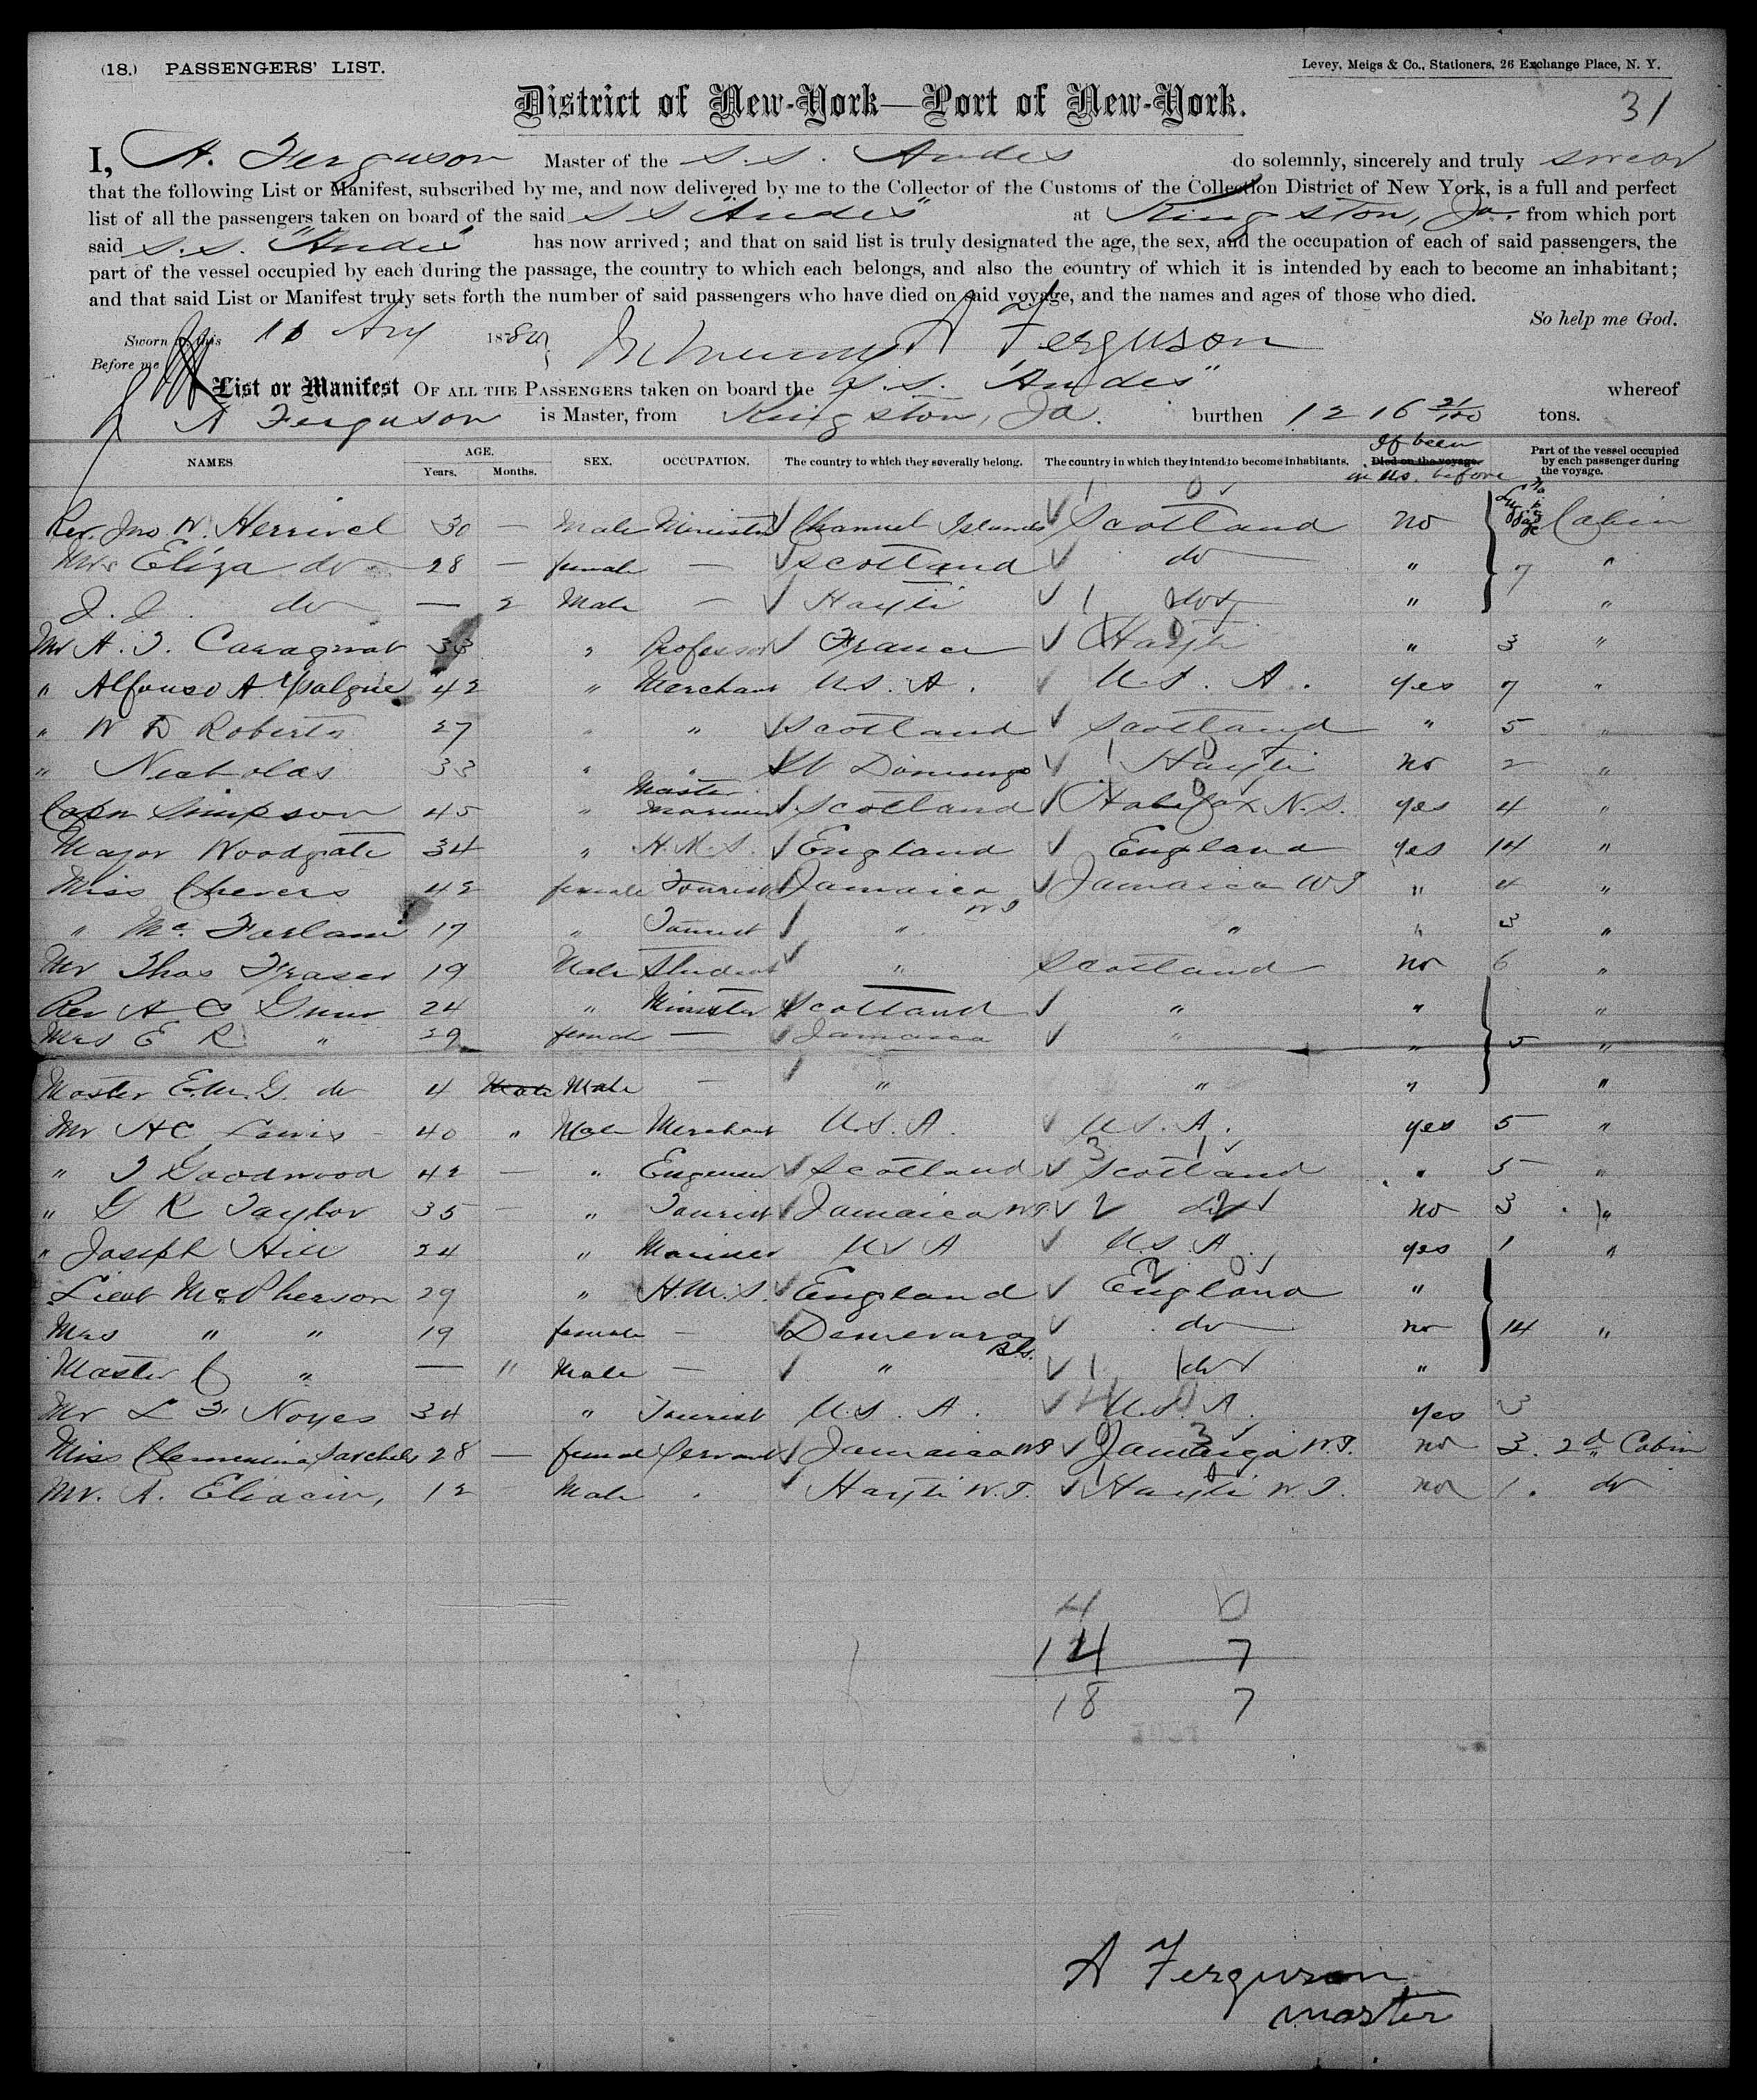 (18.) PASSENGERS' LIST.
Levey, Meigs & Co., Stationers, 26 Exchange Place, N. Y.
District of New-York—Port of New-York.
31
I, A. Ferguson Master of the S.S. Andes do solemnly, sincerely and truly swear
that the following List or Manifest, subscribed by me, and now delivered by me to the Collector of the Customs of the Collection District of New York, is a full and perfect
list of all the passengers taken on board of the said S S "Andes" at Kingston, Ja. from which port
said S.S. "Andes" has now arrived; and that on said list is truly designated the age, the sex, and the occupation of each of said passengers, the
part of the vessel occupied by each during the passage, the country to which each belongs, and also the country of which it is intended by each to become an inhabitant;
and that said List or Manifest truly sets forth the number of said passengers who have died on said voyage, and the names and ages of those who died.
So help me God.
Sworn to this 11 Aug 1880
Before me
A Ferguson
List or Manifest OF ALL THE PASSENGERS taken on board the S.S. "Andes" whereof
A Ferguson is Master, from Kingston, Ja. burthen 1216 21/100 tons.
NAMES AGE. Years. Months. SEX. OCCUPATION. The country to which they severally belong. The country in which they intend to become inhabitants. Died on the voyage. If been in U.S. before Part of the vessel occupied by each passenger during the voyage.
Rev. Jno W. Herrivel 30 — Male Minister Channel Islands Scotland no Cabin
Mrs Eliza do 28 — female — Scotland do " 7 "
J. J. do — 2 Male — Hayti do " "
Mr A. J. Caragnat 33 " Professor France Hayti " 3 "
" Alfonso A 42 " Merchant U.S. A. U.S. A. yes 7 "
" W D Roberts 27 " " Scotland Scotland " 5 "
" Nicholas 33 " " St Domingo Hayti no 2 "
Capn Simpson 45 " Master Mariner Scotland Halifax N.S. yes 4 "
Major Woodgate 34 " H.M.S. England England yes 14 "
Miss Chevers 42 female Tourist Jamaica W I Jamaica W I " 4 "
" Mc Farlane 17 " Tourist " " " 3 "
Mr Thos Fraser 19 Male Student " Scotland no 6 "
Rev A C Gunn 24 " Minister Scotland " " "
Mrs E R " 29 female — Jamaica " " 5 "
Master E.M.G. do 4 Male Male — " " " "
Mr H C Lewis 40 " Male Merchant U.S. A. U.S. A. yes 5 "
" J Goodwood 42 — " Engineer Scotland Scotland " 5 "
" G R Taylor 35 — " Tourist Jamaica W I do no 3 "
" Joseph Hill 24 " Mariner U S A U.S. A. yes 1 "
Lieut McPherson 29 " H.M.S. England England "
Mrs " " 19 female — Demerara do no 14 "
Master " — 11 Male — " do "
Mr L F Noyes 34 " Tourist U.S. A. U.S. A. yes 3
Miss Clementina 28 — female Servant Jamaica W I Jamaica W.I. no 3. 2d Cabin
Mr. A. Eliacin, 12 Male . Hayti W.I. Hayti W I. no 1. do
4 0
14 7
18 7
A Ferguson
master